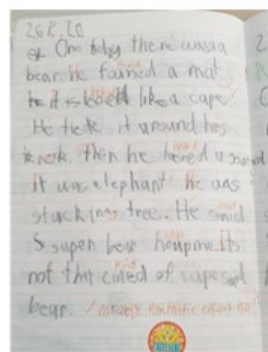 26.8.20
One bday there was a
bear. he fained a mat.
it is look like a cape.
He tiek it around hes
neck. then he hered a sound
It was elephant He was
stucking tree. He said
S super bear houpme. Its
not that cined of super
bear.
fantastic effort